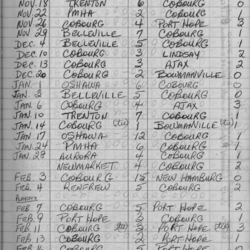 NOV. 18 TRENTON 6 COBOURG 0
NOV 22 PMHA 2 COBOURG
NOV 26 COBOURG 4 PORT HOPE 2
NOV 29 BELLEVILLE 7 COBOURG 0
DEC 4 BELLEVILLE 5 COBOURG 1
DEC. 10 COBOURG 3 LINDSAY 2
DEC. 13 COBOURG AJAX 2
DEC. 20 COBOURG 2 BOWMANVILLE 0
JAN 1 OSHAWA 6 COBOURG
JAN 2 BELLEVILLE 5 COBOURG
JAN 6 COBOURG 4 AJAX 3
JAN 10 TRENTON 7 COBOURG
JAN. 14 COBOURG 1 BOWMANVILLE 1
JAN 17 OSHAWA 12 COBOURG
JAN 24 PMHA 6 COBOURG
JAN 28 AURORA 4 COBOURG
NEWMARKET 4 COBOURG
FEB. 3 COBOURG NEW HAMBURG 0
FEB. 4 RENFREW 5 COBOURG 2
FEB 7 COBOURG 5 PORT HOPE 2
FEB. 9 PORT HOPE 3 COBOURG
FEB 11 COBOURG 3 PORT HOPE 3
FEB. 13 COBOURG 2 PORT HOPE